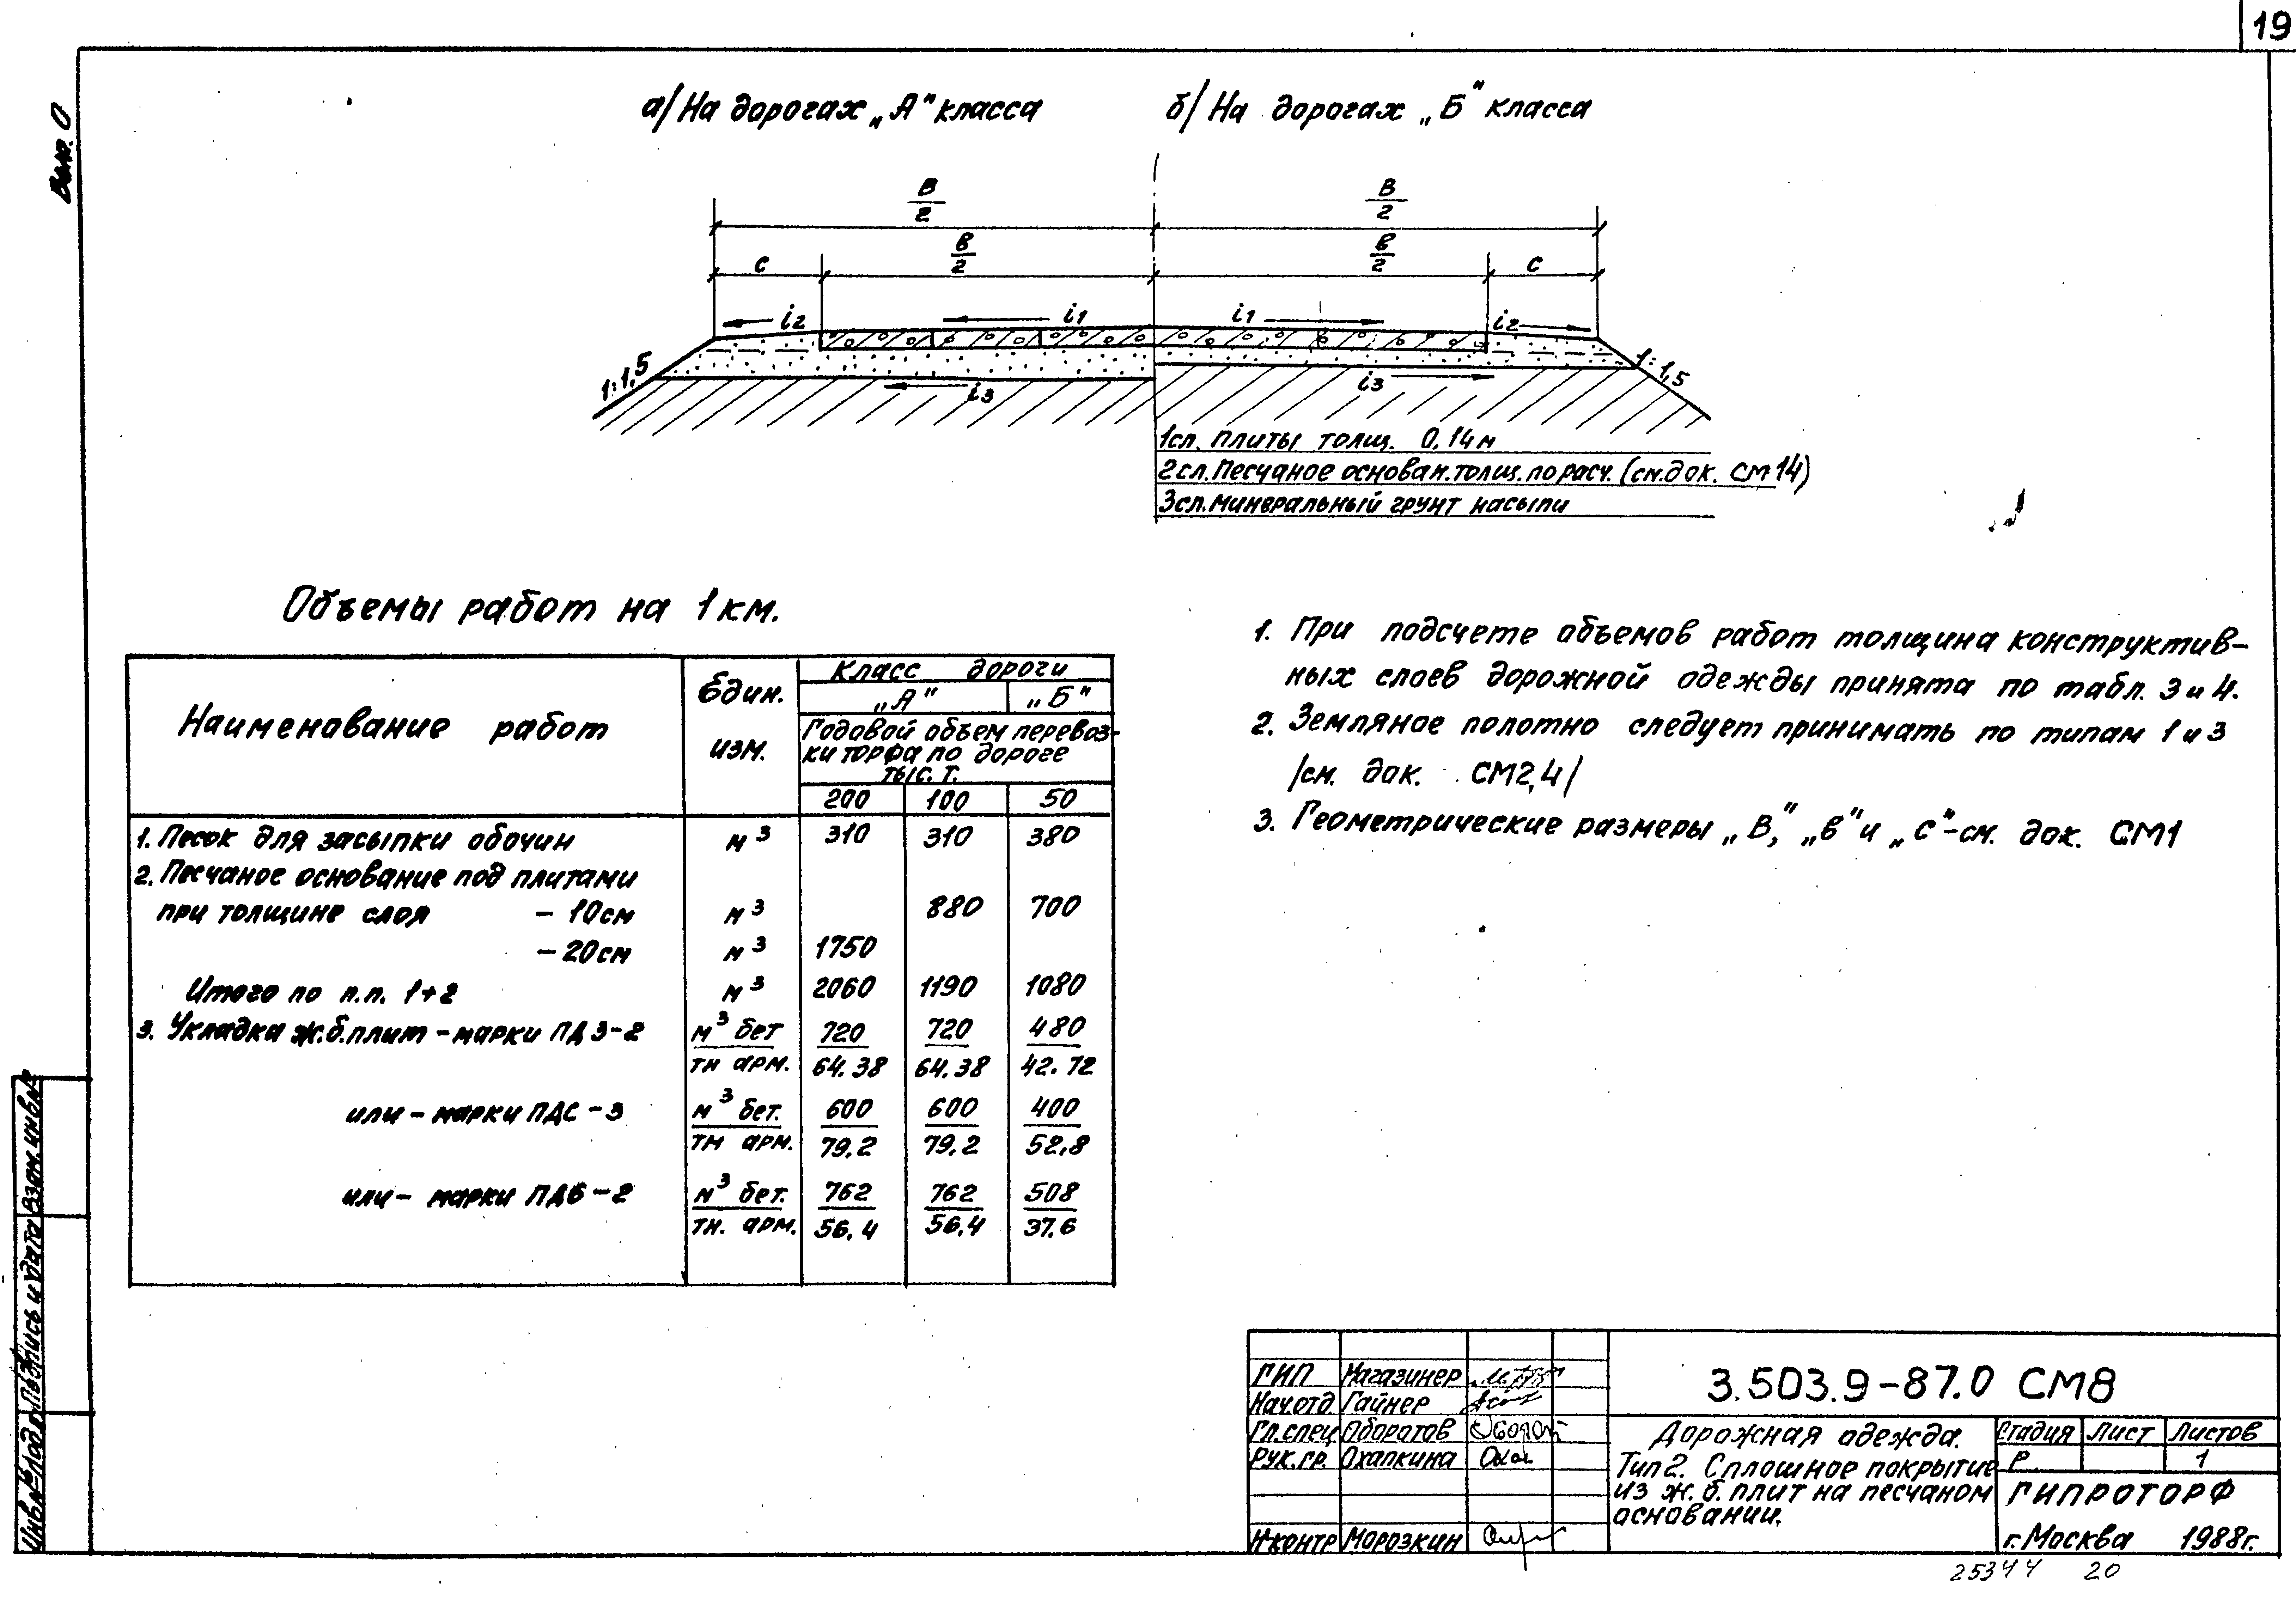 19
Вып. 0
а/ На дорогах „А" класса
б/ На дорогах „Б" класса
В/2 В/2
с в/2 в/2 с
i2 i1 i1 i2
1:1,5 i3 i3 1:1,5
1сл. Плиты толщ. 0,14 м
2сл. Песчаное основан. толщ. по расч. (см. док. СМ14)
3сл. Минеральный грунт насыпи
Объемы работ на 1 км.
Наименование работ
Един. изм.
Класс дороги
„А" „Б"
Годовой объем перевоз-
ки торфа по дороге
тыс. т.
200 100 50
1. Песок для засыпки обочин м3 310 310 380
2. Песчаное основание под плитами
при толщине слоя - 10см м3 880 700
- 20см м3 1750
Итого по п.п. 1+2 м3 2060 1190 1080
3. Укладка ж.б. плит - марки ПД3-2 м3 бет 720 720 480
тн арм. 64.38 64.38 42.72
или - марки ПДС-3 м3 бет. 600 600 400
тн арм. 79,2 79,2 52,8
или - марки ПД6-2 м3 бет. 762 762 508
тн. арм. 56,4 56,4 37,6
1. При подсчете объемов работ толщина конструктив-
ных слоев дорожной одежды принята по табл. 3 и 4.
2. Земляное полотно следует принимать по типам 1 и 3
/см. док. СМ2,4/
3. Геометрические размеры „В", „в" и „с" - см. док. СМ1
ГИП Магазинер
Нач.отд. Гайнер
Гл.спец Оборотов
Рук.гр. Охапкина
Н.контр Морозкин
3.503.9-87.0 СМ8
Дорожная одежда.
Тип 2. Сплошное покрытие
из ж.б. плит на песчаном
основании.
Стадия Лист Листов
Р 1
ГИПРОТОРФ
г. Москва 1988г.
25344 20
Инв.№подл. Подпись и дата Взам.инв№